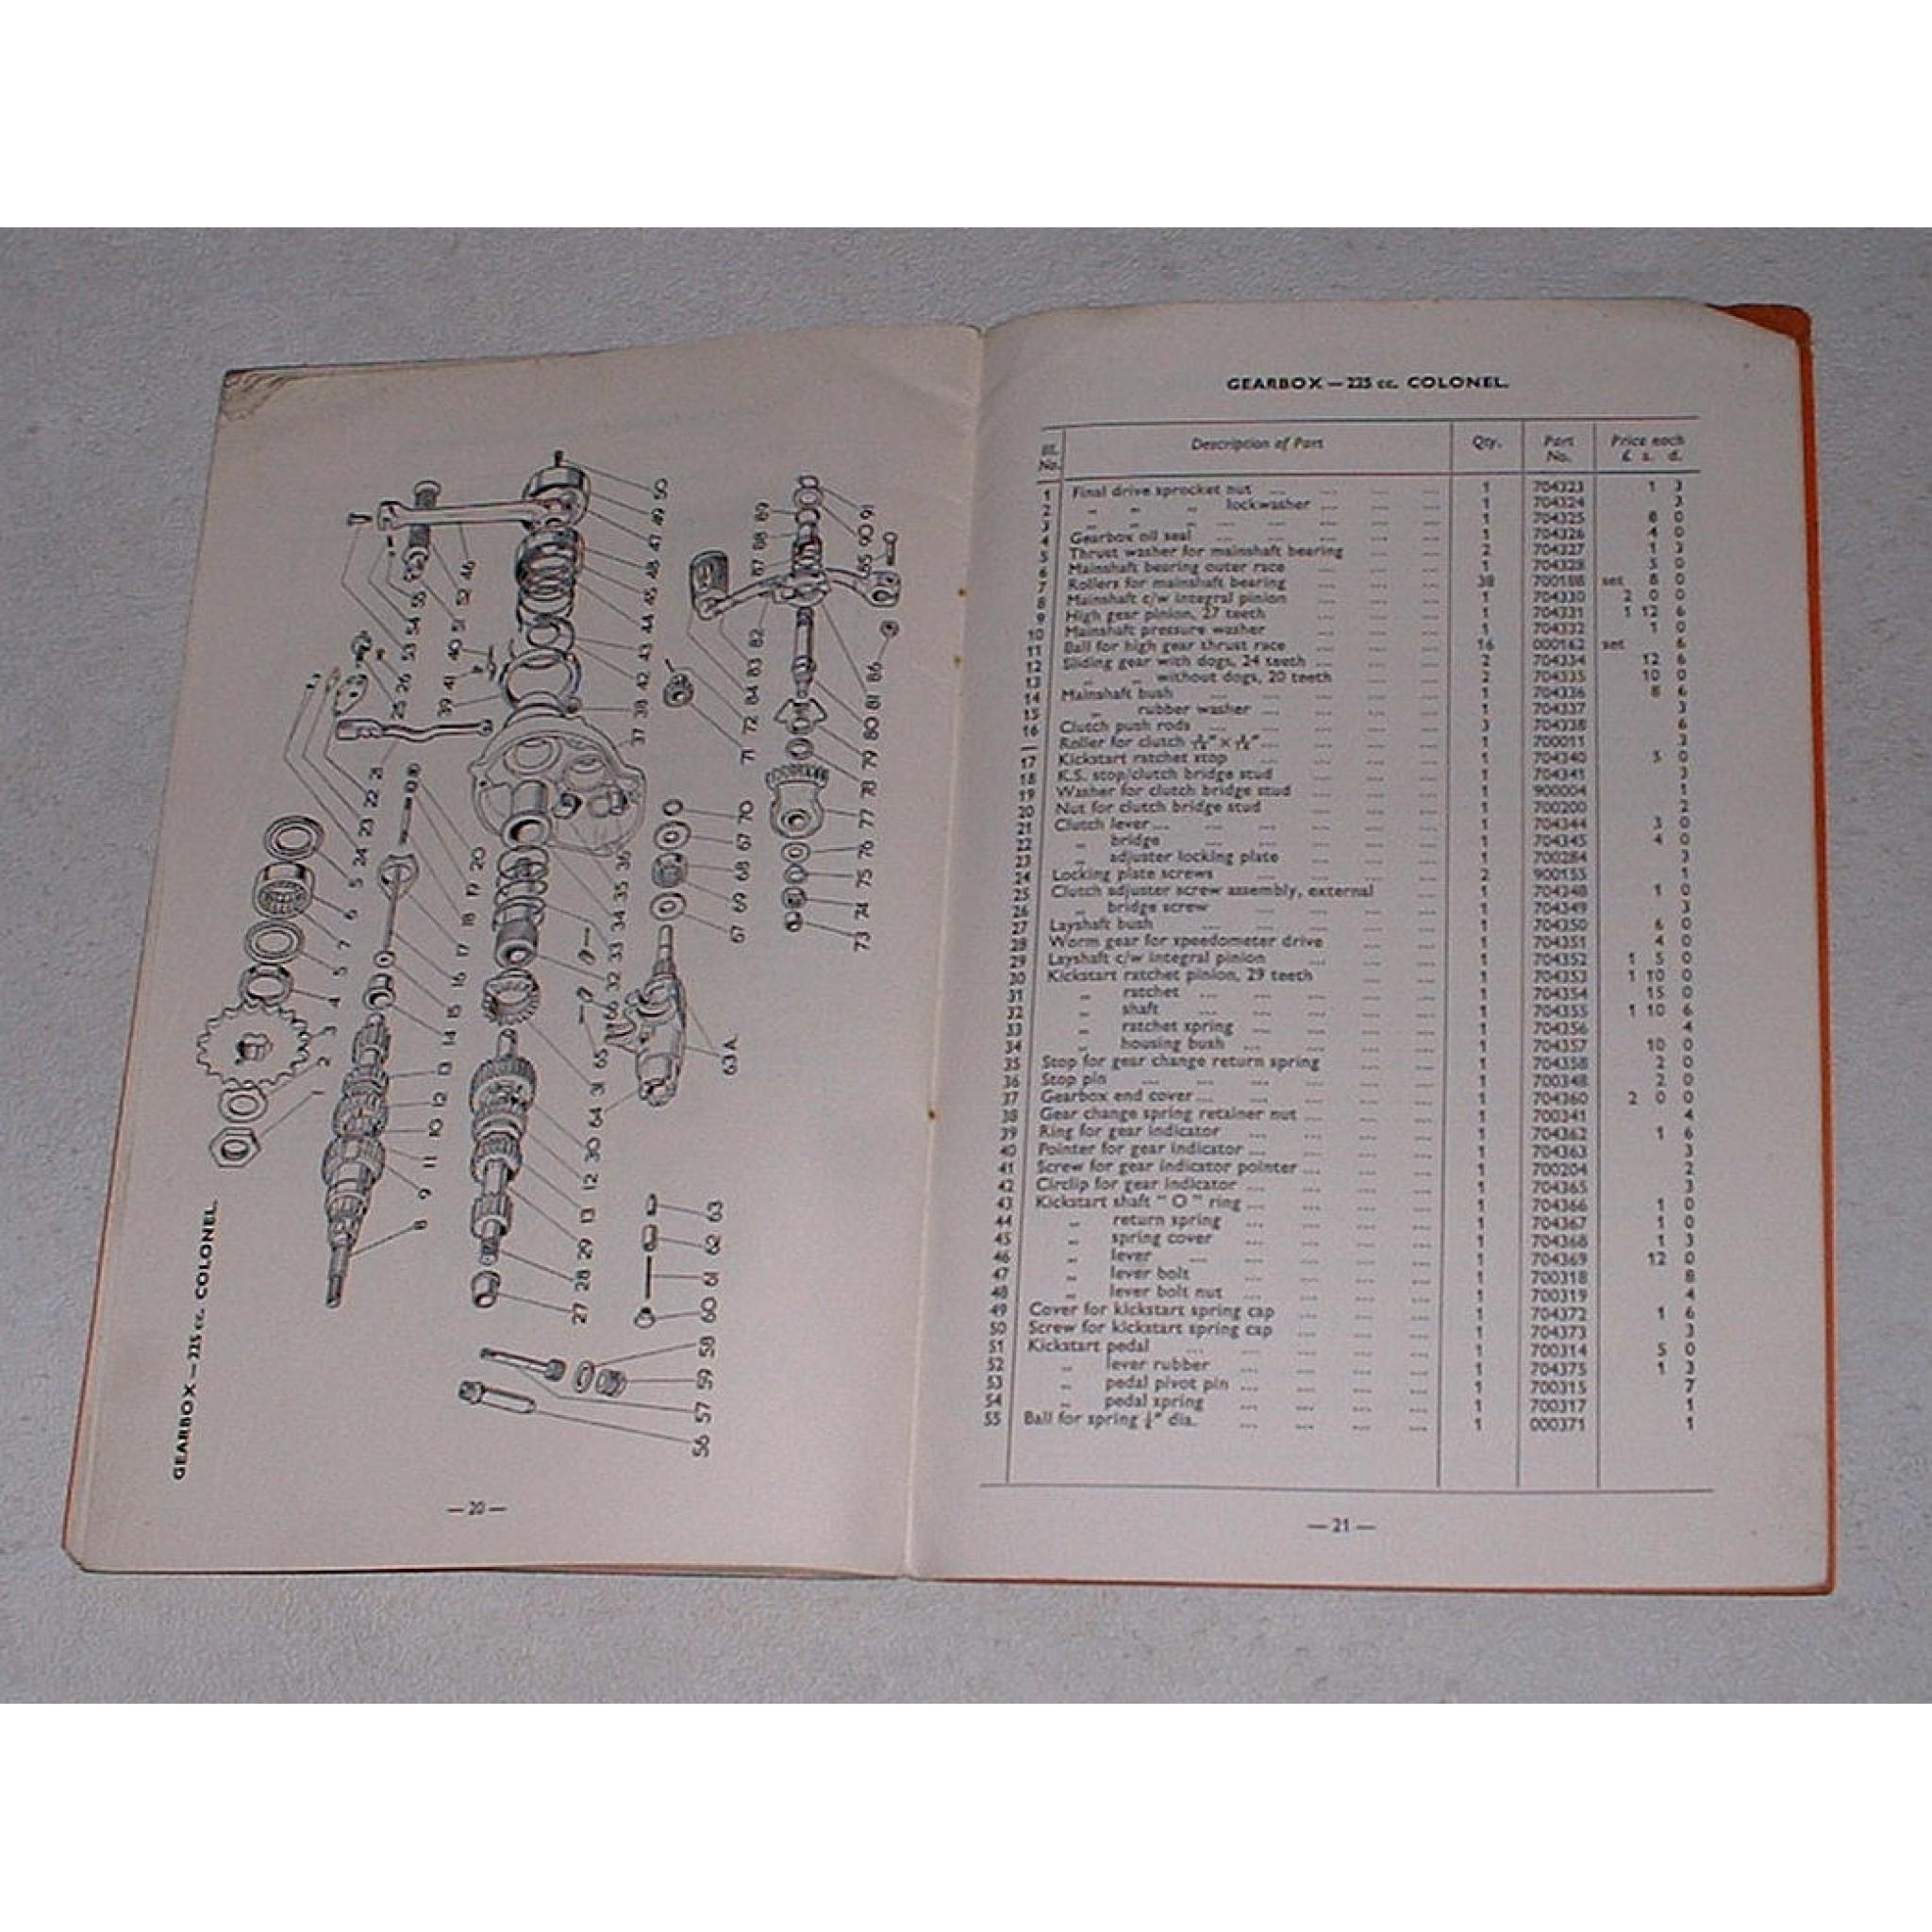 GEARBOX — 225 cc. COLONEL.
1
2
3
4
5
7
6
5
24
23
22
21
25
26
53
54
55
51
52
46
40
41
39
8
9
11
10
12
13
14
15
16
17
18
19
20
27
28
29
13
12
30
31
32
33
34
35
36
37
38
42
43
44
45
48
47
49
50
64
65
66
63A
67
69
68
67
70
71
72
84
83
82
87
88
89
90
91
85
86
81
80
79
78
77
76
75
74
73
56
57
59
58
60
61
62
63
— 20 —
GEARBOX — 225 cc. COLONEL.
Ill. No. Description of Part Qty. Part No. Price each £ s. d.
1 Final drive sprocket nut ... ... ... ... 1 704323 1 3
2 „ „ „ lockwasher ... ... ... 1 704324 3
3 „ „ „ ... ... ... ... ... 1 704325 8 0
4 Gearbox oil seal ... ... ... ... ... 1 704326 4 0
5 Thrust washer for mainshaft bearing ... ... 2 704327 1 3
6 Mainshaft bearing outer race ... ... ... 1 704328 5 0
7 Rollers for mainshaft bearing ... ... ... 38 700188 set 8 0
8 Mainshaft c/w integral pinion ... ... ... 1 704330 2 0 0
9 High gear pinion, 27 teeth ... ... ... 1 704331 1 12 6
10 Mainshaft pressure washer ... ... ... 1 704332 1 0
11 Ball for high gear thrust race ... ... ... 16 000162 set 6
12 Sliding gear with dogs, 24 teeth ... ... ... 2 704334 12 6
13 „ „ without dogs, 20 teeth ... ... 2 704335 10 0
14 Mainshaft bush ... ... ... ... ... 1 704336 8 6
15 „ rubber washer ... ... ... ... 1 704337 3
16 Clutch push rods ... ... ... ... ... 3 704338 6
— Roller for clutch ... ... ... ... 1 700011 3
17 Kickstart ratchet stop ... ... ... ... 1 704340 5 0
18 K.S. stop/clutch bridge stud ... ... ... 1 704341 3
19 Washer for clutch bridge stud ... ... ... 1 900004 1
20 Nut for clutch bridge stud ... ... ... 1 700200 2
21 Clutch lever ... ... ... ... ... 1 704344 3 0
22 „ bridge ... ... ... ... 1 704345 4 0
23 „ adjuster locking plate ... ... ... 1 700284 3
24 Locking plate screws ... ... ... ... 2 900155 1
25 Clutch adjuster screw assembly, external ... 1 704348 1 0
26 „ bridge screw ... ... ... ... 1 704349 3
27 Layshaft bush ... ... ... ... ... 1 704350 6 0
28 Worm gear for speedometer drive ... ... 1 704351 4 0
29 Layshaft c/w integral pinion ... ... ... 1 704352 1 5 0
30 Kickstart ratchet pinion, 29 teeth ... ... 1 704353 1 10 0
31 „ ratchet ... ... ... ... ... 1 704354 15 0
32 „ shaft ... ... ... ... ... 1 704355 1 10 6
33 „ ratchet spring ... ... ... ... 1 704356 4
34 „ housing bush ... ... ... ... 1 704357 10 0
35 Stop for gear change return spring ... ... 1 704358 2 0
36 Stop pin ... ... ... ... ... ... 1 700348 2 0
37 Gearbox end cover ... ... ... ... ... 1 704360 2 0 0
38 Gear change spring retainer nut ... ... ... 1 700341 4
39 Ring for gear indicator ... ... ... ... 1 704362 1 6
40 Pointer for gear indicator ... ... ... ... 1 704363 3
41 Screw for gear indicator pointer ... ... ... 1 700204 2
42 Circlip for gear indicator ... ... ... ... 1 704365 3
43 Kickstart shaft " O " ring ... ... ... ... 1 704366 1 0
44 „ return spring ... ... ... ... 1 704367 1 0
45 „ spring cover ... ... ... ... 1 704368 1 3
46 „ lever ... ... ... ... ... 1 704369 12 0
47 „ lever bolt ... ... ... ... 1 700318 8
48 „ lever bolt nut ... ... ... ... 1 700319 4
49 Cover for kickstart spring cap ... ... ... 1 704372 1 6
50 Screw for kickstart spring cap ... ... ... 1 704373 3
51 Kickstart pedal ... ... ... ... ... 1 700314 5 0
52 „ lever rubber ... ... ... ... 1 704375 1 3
53 „ pedal pivot pin ... ... ... ... 1 700315 7
54 „ pedal spring ... ... ... ... 1 700317 1
55 Ball for spring dia. ... ... ... ... 1 000371 1
— 21 —